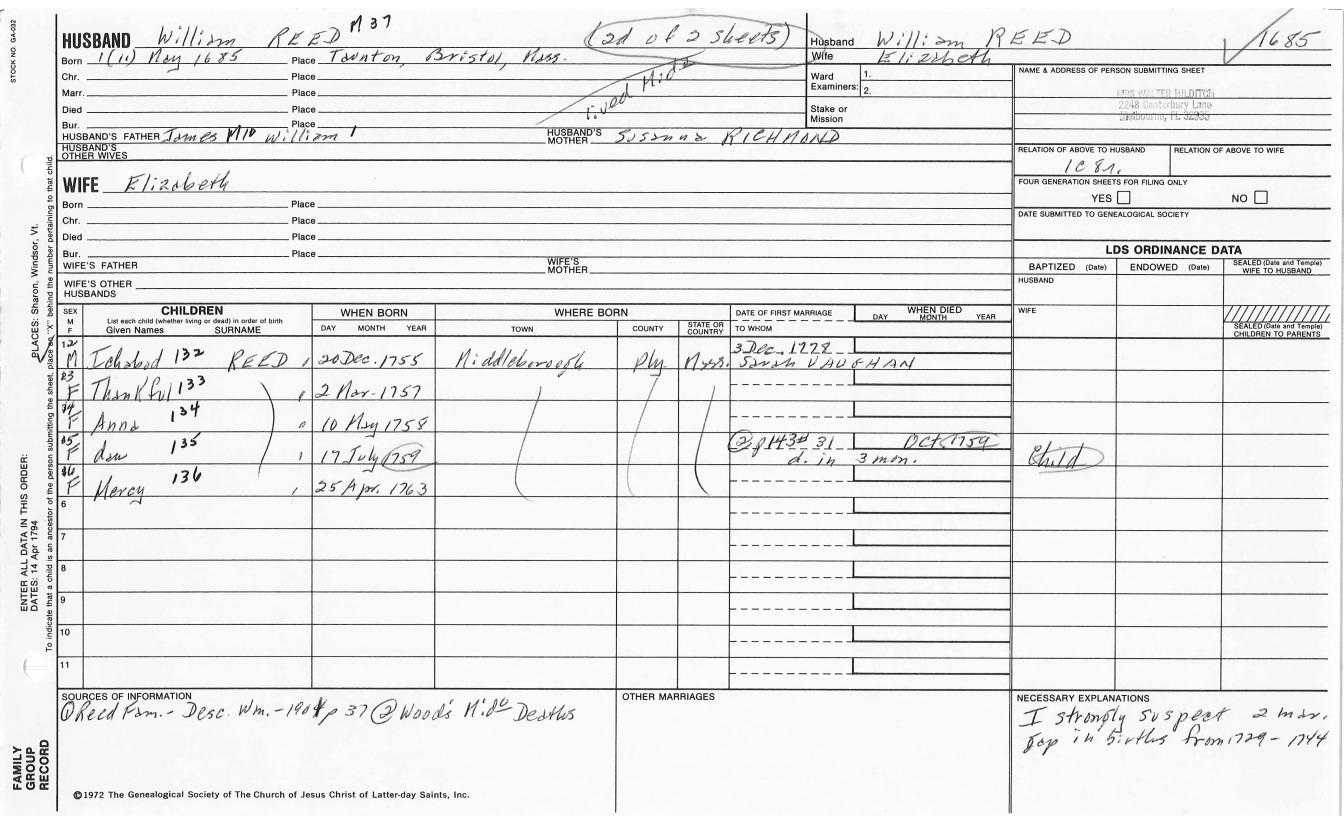 STOCK NO. GA-032
HUSBAND William REED M 37
(2d of 2 sheets)
Husband William REED
Wife Elizabeth
1685
Born 1(11) May 1685 Place Taunton, Bristol, Mass.
Chr. Place
Marr. Place
Died Place
Bur. Place
lived Midº
Ward Examiners: 1.
2.
Stake or Mission
HUSBAND'S FATHER James M10 William 1 HUSBAND'S MOTHER Susanna RICHMOND
HUSBAND'S OTHER WIVES
NAME & ADDRESS OF PERSON SUBMITTING SHEET
MRS WALTER HILDITCH
2248 Canterbury Lane
Melbourne, FL 32935
RELATION OF ABOVE TO HUSBAND RELATION OF ABOVE TO WIFE
1c 8r.
FOUR GENERATION SHEETS FOR FILING ONLY
YES NO
DATE SUBMITTED TO GENEALOGICAL SOCIETY
WIFE Elizabeth
Born Place
Chr. Place
Died Place
Bur. Place
WIFE'S FATHER WIFE'S MOTHER
WIFE'S OTHER HUSBANDS
LDS ORDINANCE DATA
BAPTIZED (Date) ENDOWED (Date) SEALED (Date and Temple) WIFE TO HUSBAND
HUSBAND
WIFE
SEALED (Date and Temple) CHILDREN TO PARENTS
SEX M F
CHILDREN
List each child (whether living or dead) in order of birth
Given Names SURNAME
WHEN BORN
DAY MONTH YEAR
WHERE BORN
TOWN COUNTY STATE OR COUNTRY
DATE OF FIRST MARRIAGE
TO WHOM
WHEN DIED
DAY MONTH YEAR
12 M Ichabod 132 REED 20 Dec. 1755 Middleborough Ply Mass. 3 Dec. 1778 Sarah VAUGHAN
13 F Thankful 133 2 Mar. 1757
14 F Anna 134 10 May 1758
15 F dau 135 17 July 1759 31 Oct. 1759
d. in 3 mon. Child
16 F Mercy 136 25 Apr. 1763
6
7
8
9
10
11
SOURCES OF INFORMATION
① Reed Fam. - Desc. Wm. - 1901 p 37 ② Wood's Midº Deaths
OTHER MARRIAGES
NECESSARY EXPLANATIONS
I strongly suspect 2 mar.
gap in births from 1729 - 1744
©1972 The Genealogical Society of The Church of Jesus Christ of Latter-day Saints, Inc.
PLACES: Sharon, Windsor, Vt.
ENTER ALL DATA IN THIS ORDER:
DATES: 14 Apr 1794
To indicate that a child is an ancestor of the person submitting the sheet, place an "X" behind the number pertaining to that child.
FAMILY
GROUP
RECORD